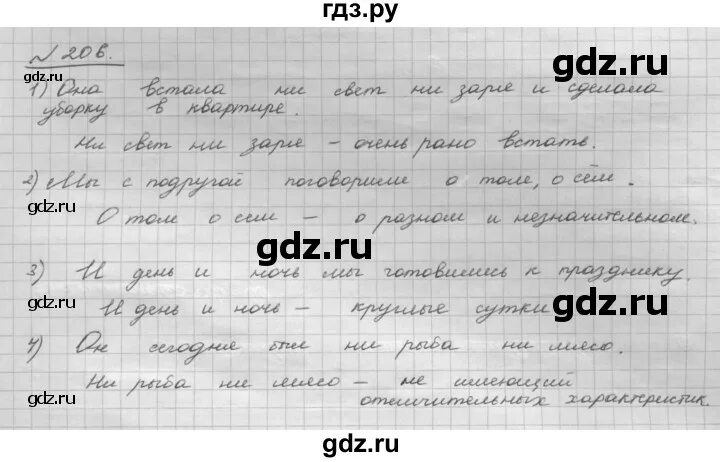 гдз.ру
№ 206.
gdz.ru gdz.ru gdz.ru
1) Она встала ни свет ни заря и сделала
уборку в квартире.
Ни свет ни заря – очень рано встать.
gdz.ru gdz.ru
2) Мы с подругой поговорили о том, о сём.
О том о сем – о разном и незначительном.
gdz.ru gdz.ru
3) И день и ночь мы готовились к празднику.
И день и ночь – круглые сутки
gdz.ru
4) Он сегодня был ни рыба ни мясо.
gdz.ru gdz.ru
Ни рыба ни мясо – не имеющий
отличительных характеристик.
gdz.ru